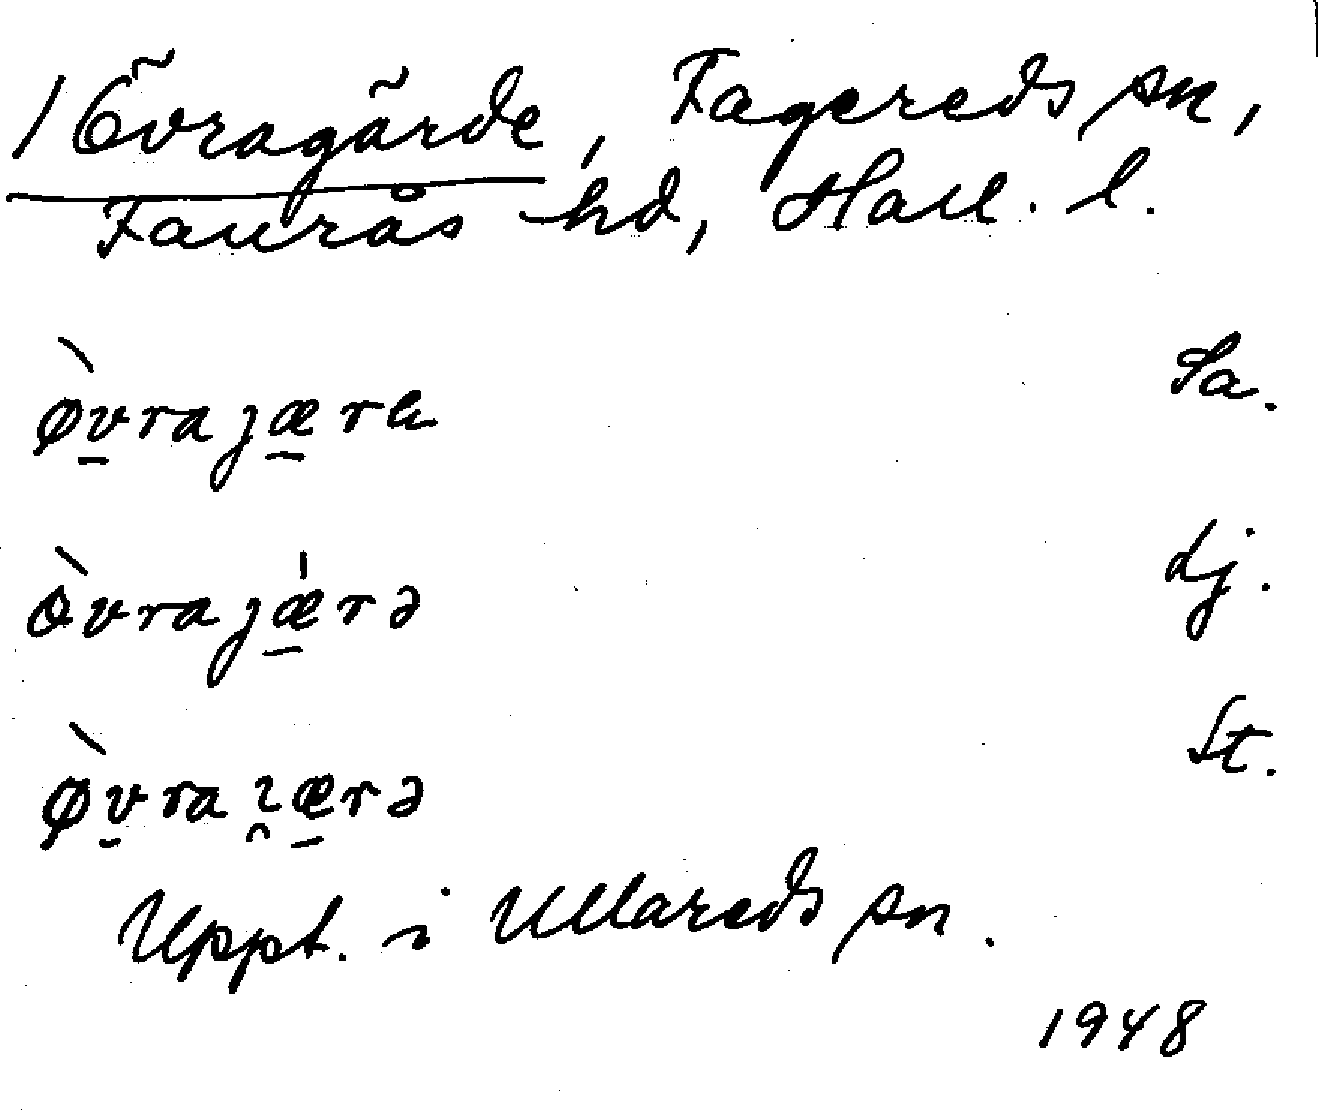 1 Övragärde, Fagereds sn,
Faurås hd, Hall. l.
ø̀v̠raȷæ̠rɐ Sa.
ò̀vraȷǽ̠rə dj.
ø̀v̠raɿ̯æ̠rə St.
Uppt. i Ullareds sn.
1948